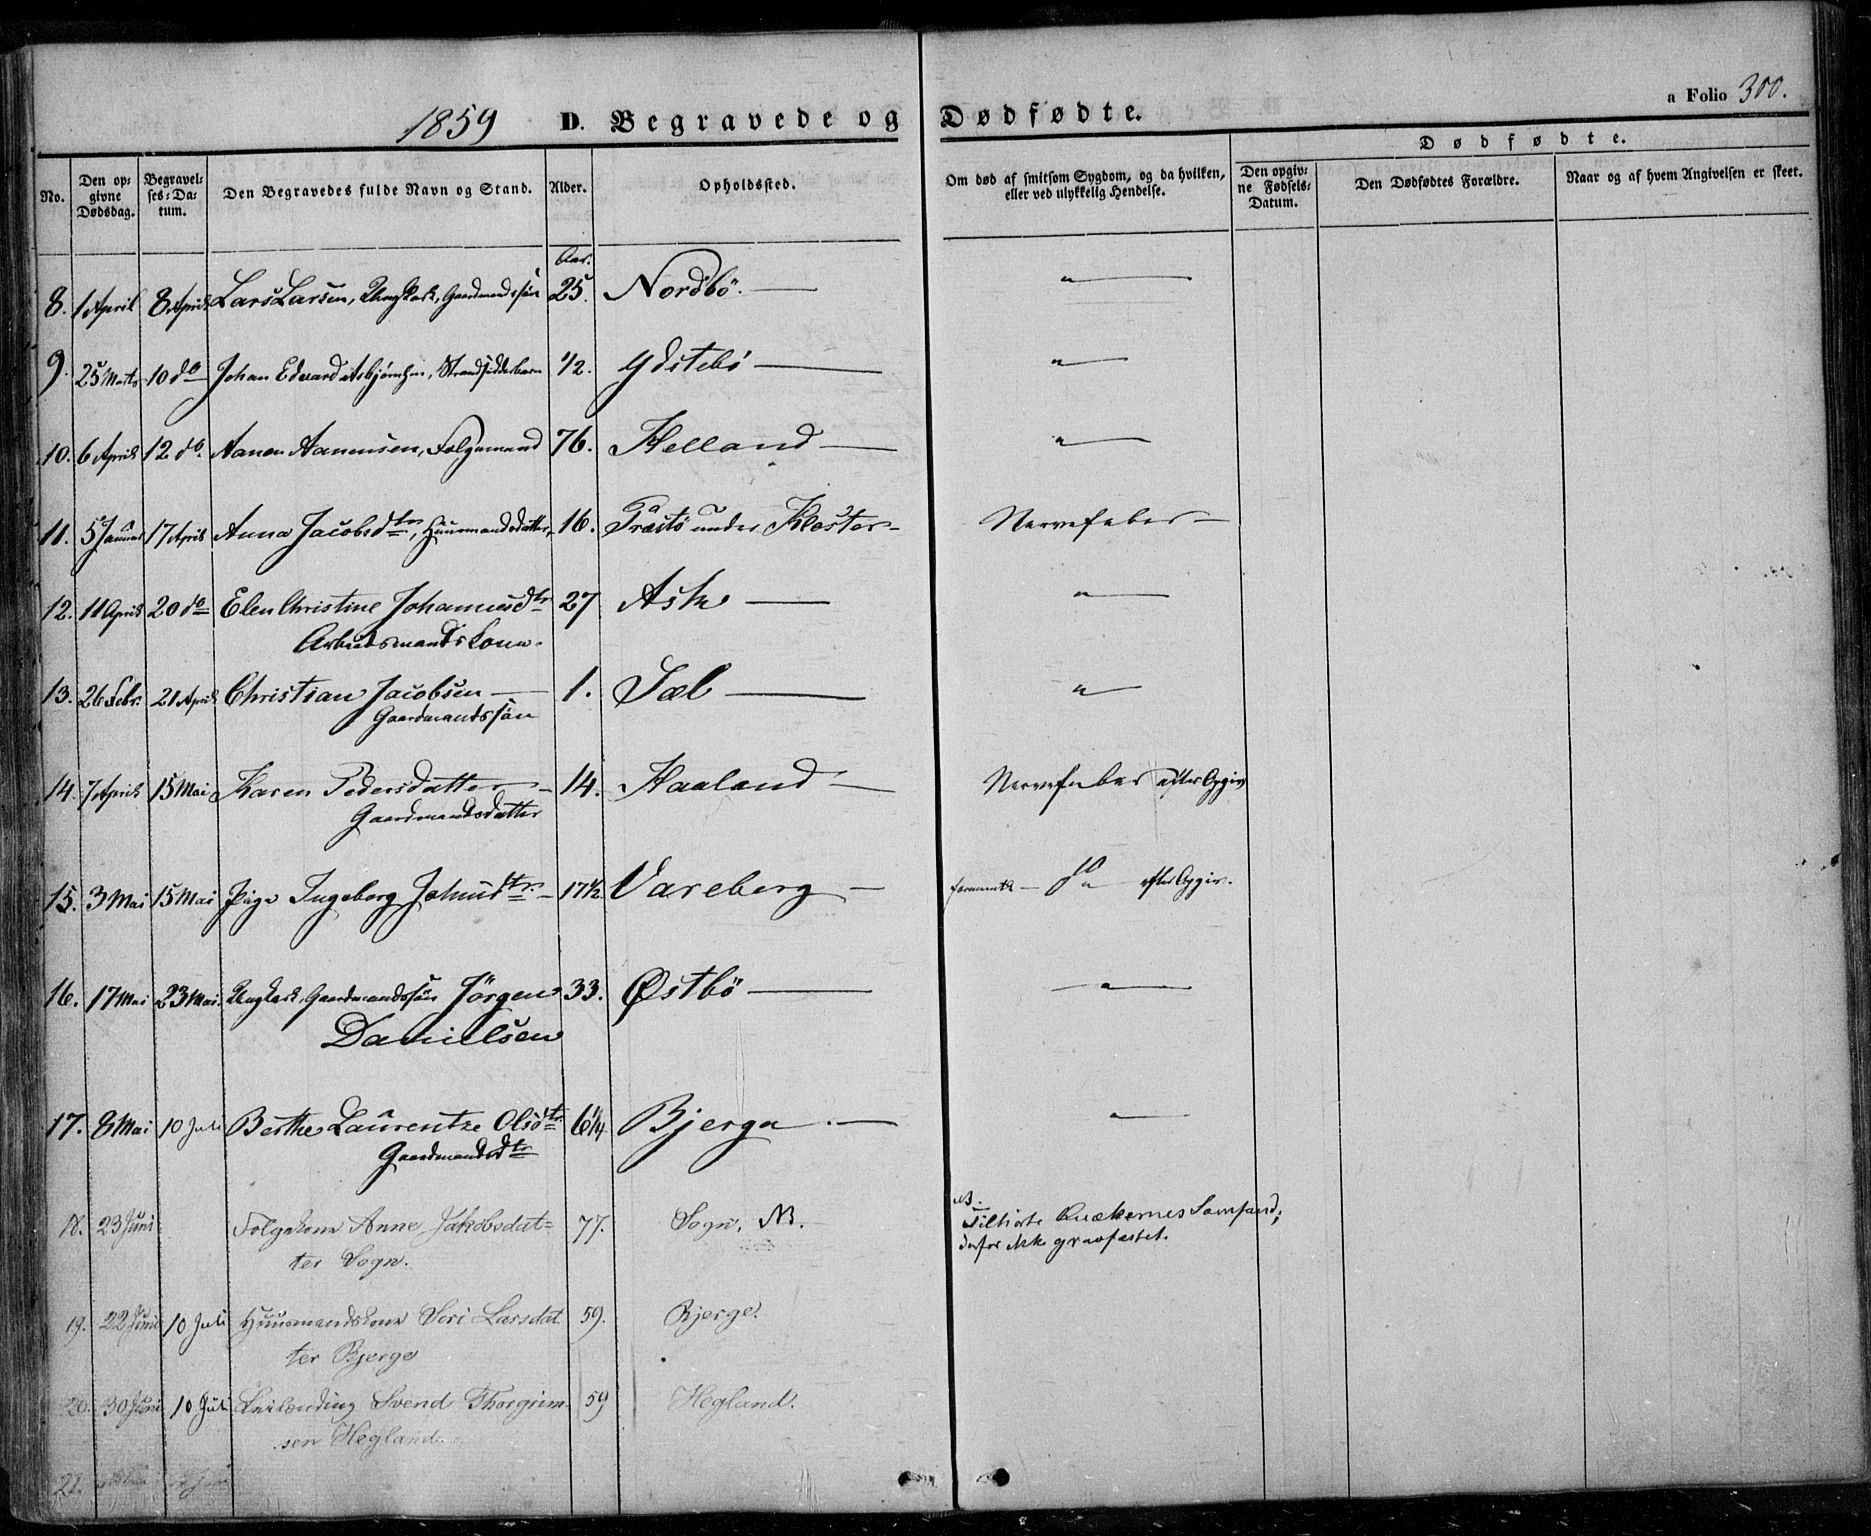 1859 D. Begravede og Dødfødte. a Folio 300.
Dødfødte.
No. Den opgivne Dødsdag. Begravelses-Datum. Den Begravedes fulde Navn og Stand. Alder. Opholdssted. Om død af smitsom Sygdom, og da hvilken, eller ved ulykkelig Hendelse. Den opgivne Fødsels-Datum. Den Dødfødtes Forældre. Naar og af hvem Angivelsen er skeet.
Aar.
8. 1 April 8 April Lars Larsen, Ungkark, Gaardmandssön 25. Nordbö. — " —
9. 25 Marts 10 do Johan Edvard Asbjörnsen, Strandsidderbarn 1/2. Ydstebö — " —
10. 6 April 12 do. Aanen Aanensen, Folgemand 76. Helland — " —
11. 5 Januar 17 April Anna Jacobsdtr, Huusmandsdatter, 16. Træstö under Kloster — Nervefeber —
12. 11 April 20 do Elen Christine Johannesdtr 27 Aske — " —
Arbeidsmandskone.
13. 26 Febr. 21 April Christian Jacobsen — 1. Sæl — " —
Gaardmandssön
14. 7 April 15 Mai Karen Pedersdatter — 14. Haaland — Nervefeber efter Opgiv.
Gaardmandsdatter
15. 3 Mai 15 Mai Pige Ingeborg Johnsdtr. — 17 1/2 Vareberg — formentl. — do efter Opgiv.
16. 17 Mai 23 Mai. Ungkark, Gaardmandssön Jörgen 33. Østbö — " —
Danielsen
17. 8 Mai 10 Juli Berthe Laurentze Olsdtr 6 1/4 Bjerga. — " —
Gaardmandsdtr
18. 23 Juni Folgekone Anne Jakobsdat- 77. Sogn. NB. NB. Tilhørte Quækernes Samfund;
ter Sogn. derfor ikke gravfæstet.
19. 22 Juni 10 Juli Huusmandskone Siri Larsdat- 59. Bjerge.
ter Bjerge
20. 30 Juni 10 Juli Leilænding Svend Thorgrim- 59 Hegland.
sen Hegland.
21.